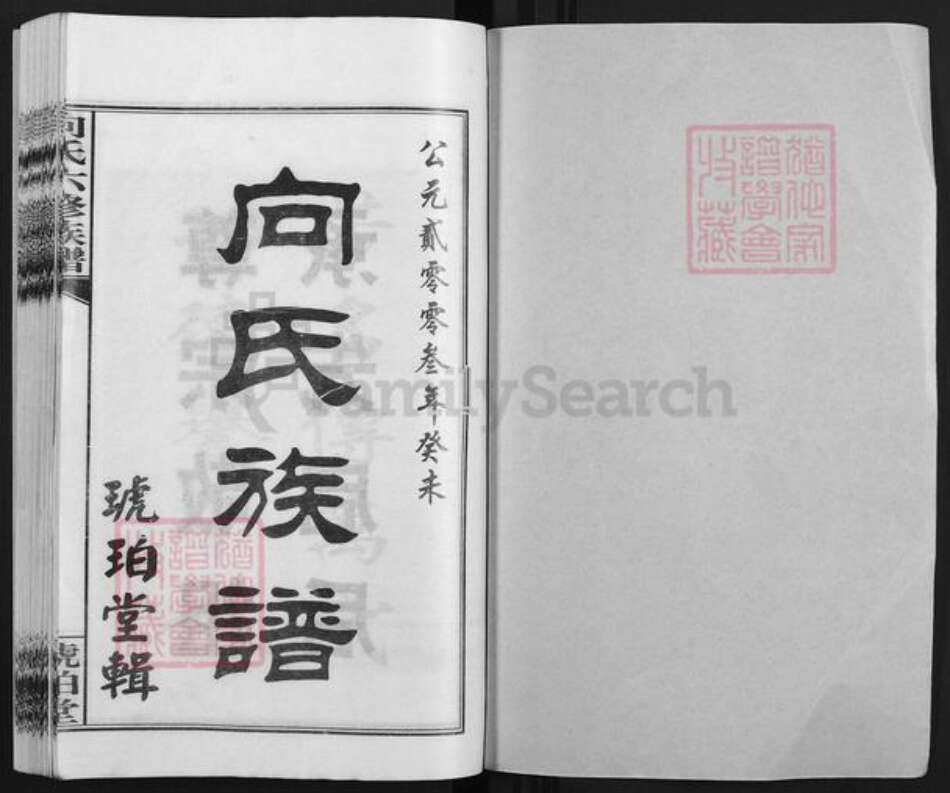 公元貳零零叁年癸未
向氏族譜
琥珀堂輯
向氏六修族譜
琥珀堂
FamilySearch